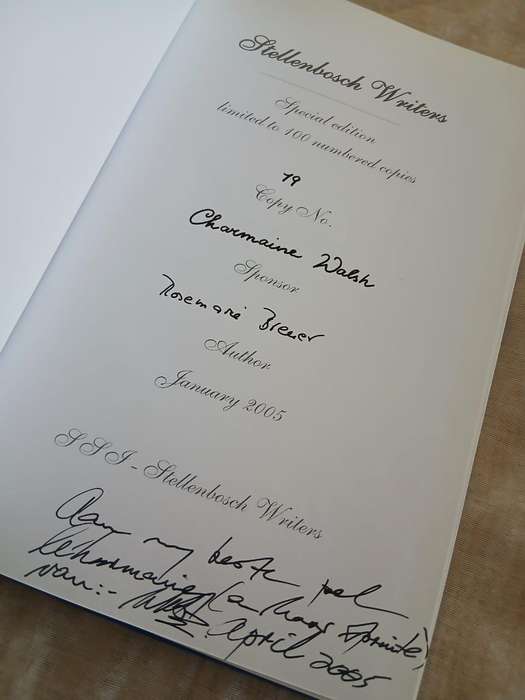 Stellenbosch Writers
Special edition
limited to 100 numbered copies
19
Copy No.
Charmaine Walsh
Sponsor
Rosemarie Breuer
Author
January 2005
SSI - Stellenbosch Writers
Aan my beste pel
Charmaine
van:- April 2005